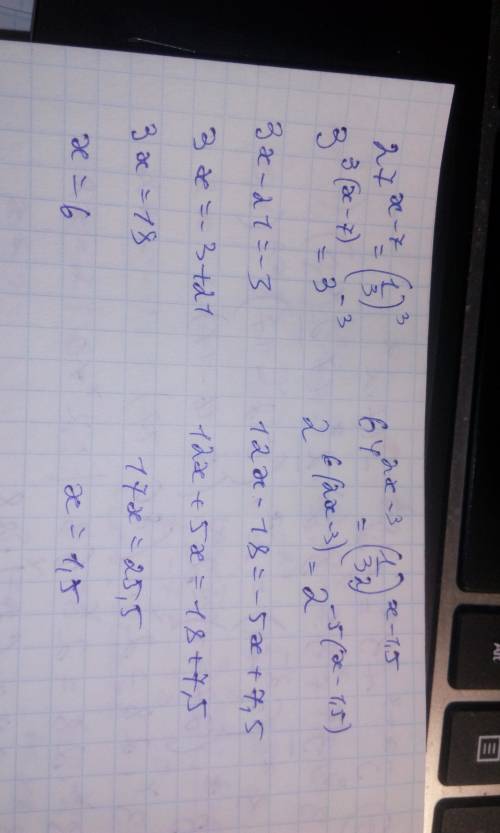 27^(x-7) = (1/3)^3
3^(3(x-7)) = 3^(-3)
3x - 21 = -3
3x = -3+21
3x = 18
x = 6
64^(2x-3) = (1/32)^(x-1,5)
2^(6(2x-3)) = 2^(-5(x-1,5))
12x - 18 = -5x + 7,5
12x + 5x = 18 + 7,5
17x = 25,5
x = 1,5
Alt